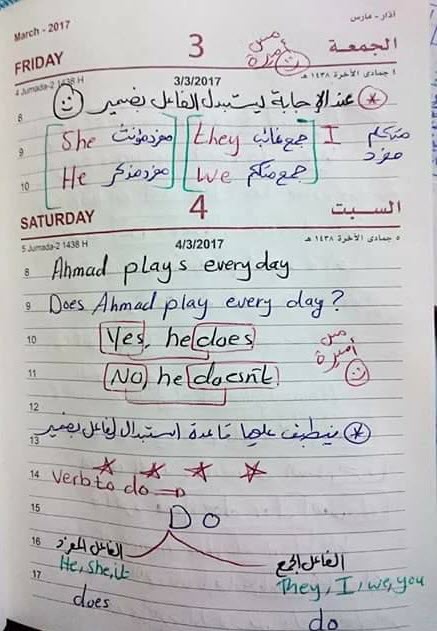 March - 2017
آذار - مارس
FRIDAY 3 الجمعة
مس أميرة
4 Jumada-2 1438 H 3/3/2017 ٤ جمادى الآخرة ١٤٣٨ هـ
8 * عند الإجابة يستبدل الفاعل بضمير
9 She مفرد مؤنث they جمع غائب I متكلم مفرد
10 He مفرد مذكر we جمع متكلم
SATURDAY 4 السبت
5 Jumada-2 1438 H 4/3/2017 ٥ جمادى الآخرة ١٤٣٨ هـ
8 Ahmad plays everyday
9 Does Ahmad play every day?
10 Yes, he does
مس أميرة
11 No, he doesn't
12
13 * ينطبق عليها قاعدة استبدال الفاعل بضمير
14 Verb to do
15 Do
16 الفاعل المفرد الفاعل الجمع
17 He, She, it They, I, we, you
does do